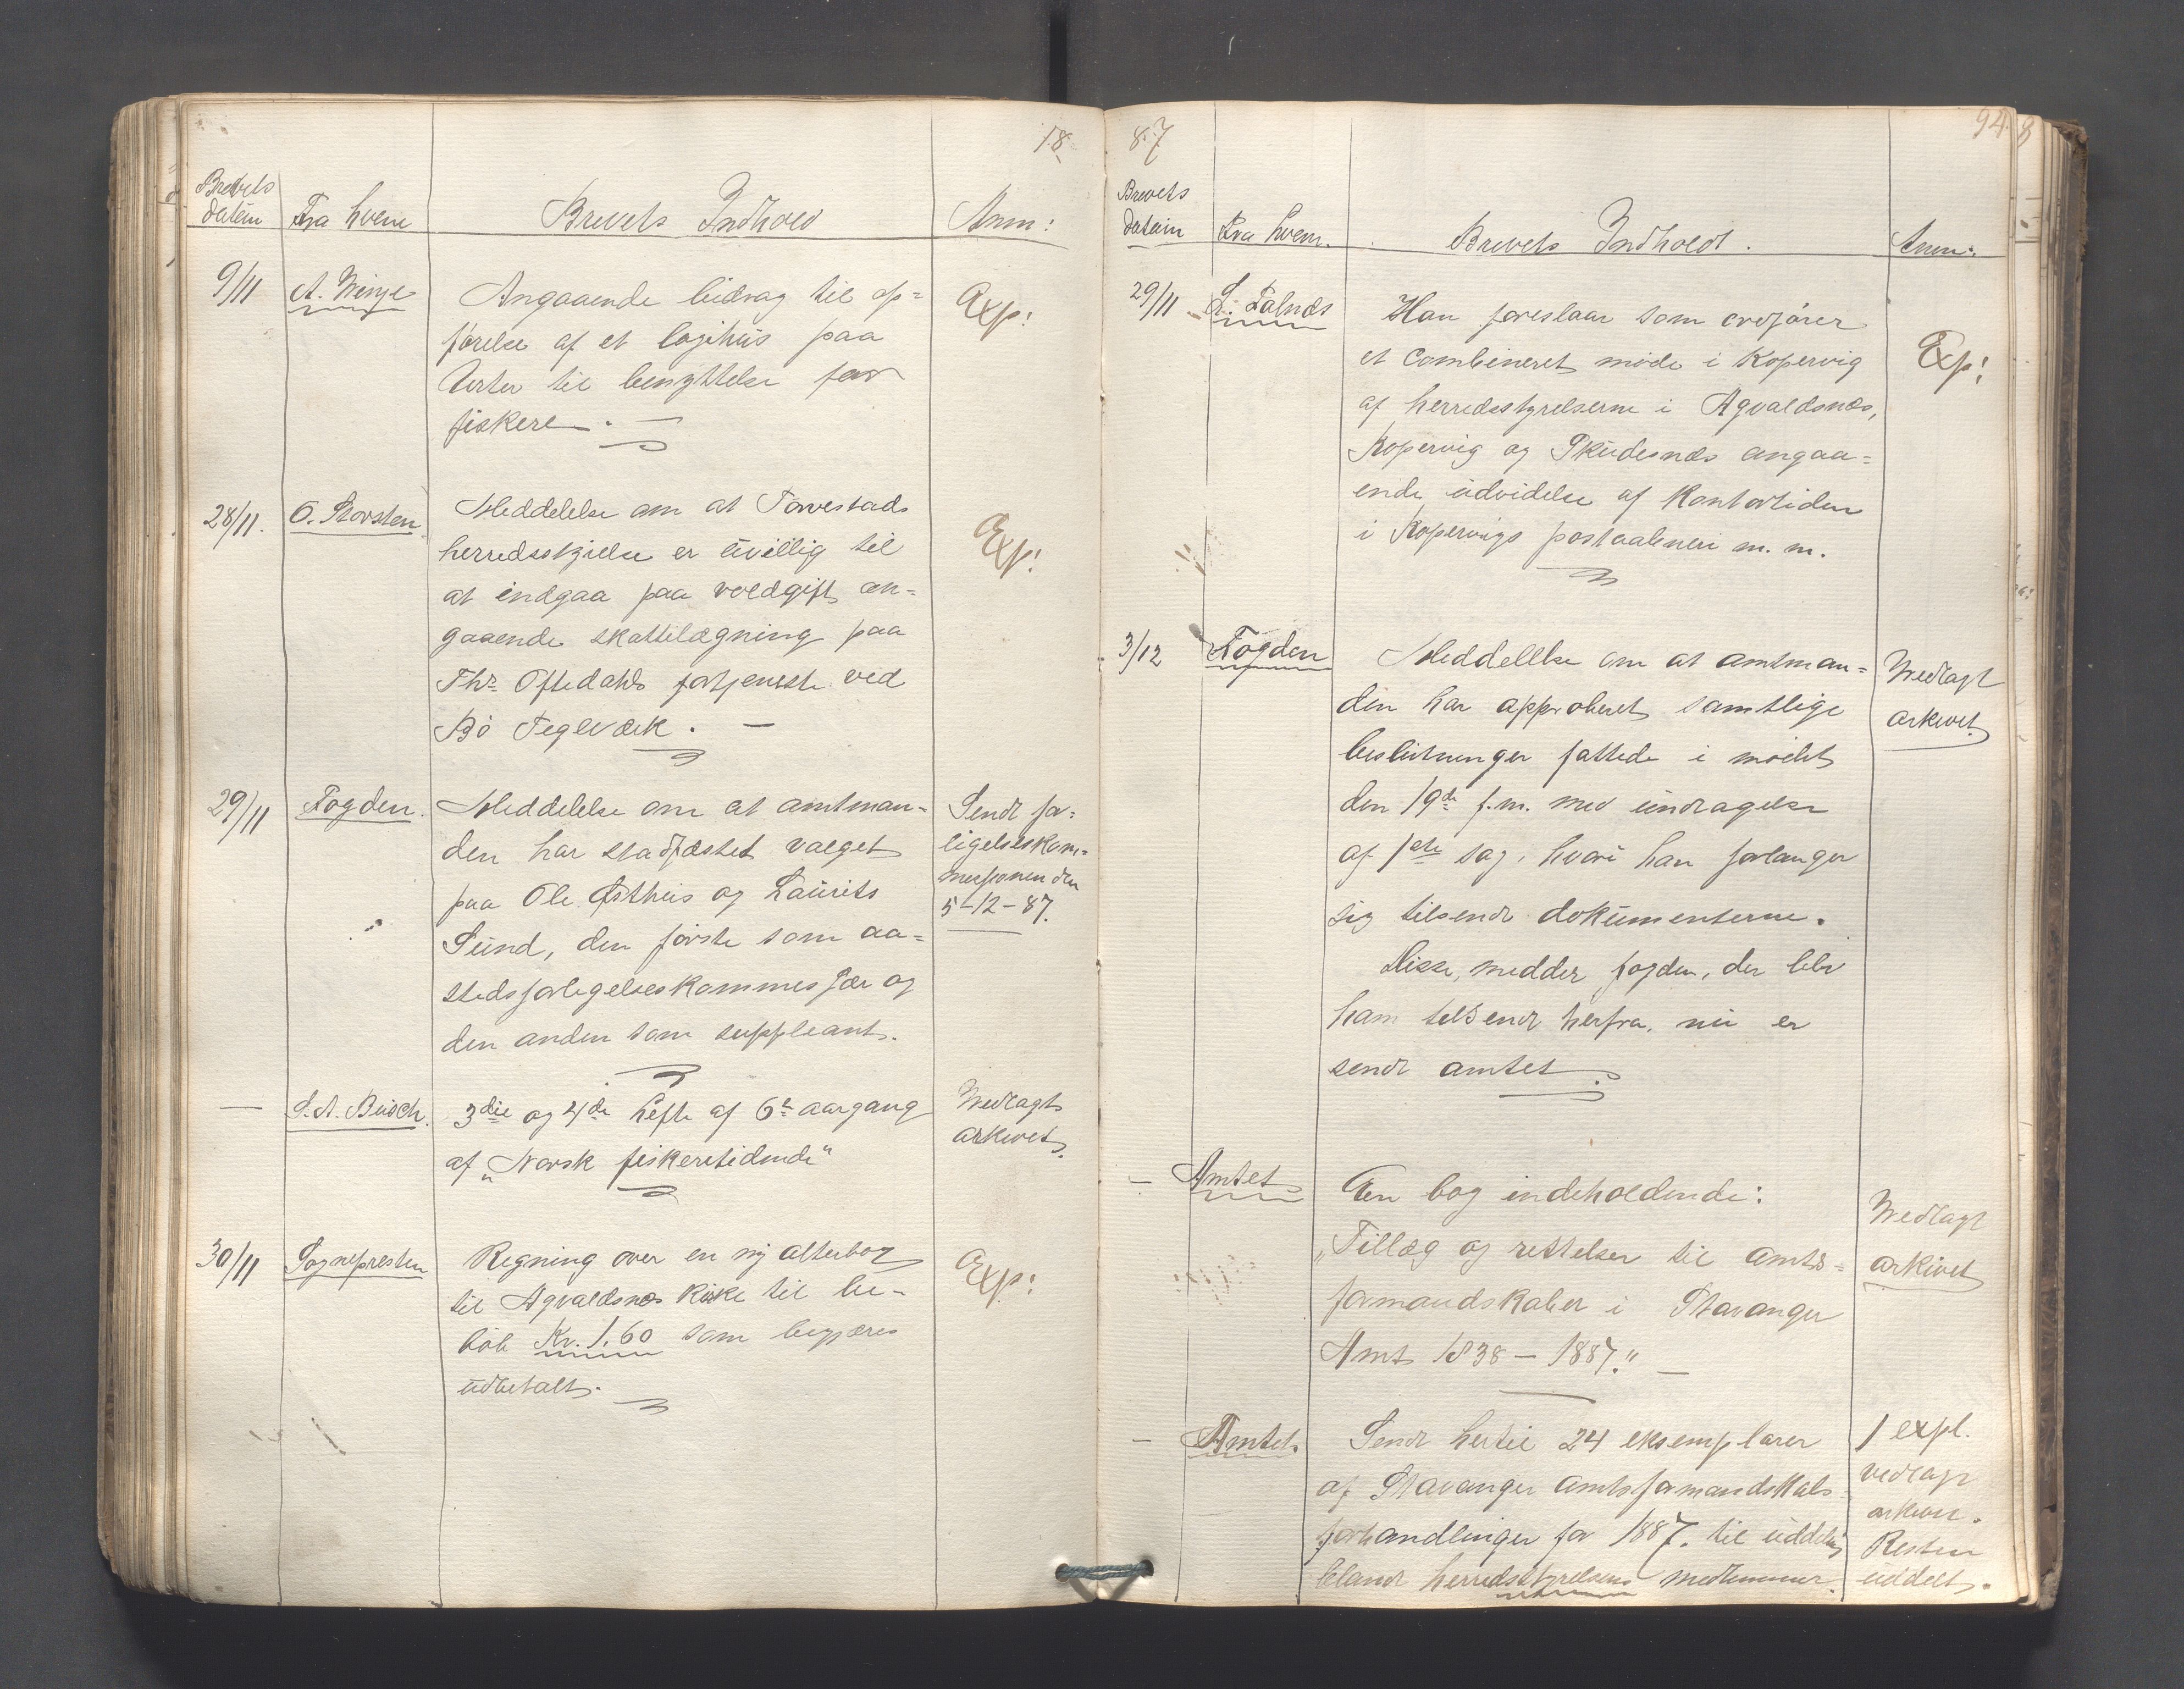 18
Brevets
datum Fra hvem Brevets Indhold Anm:
9/11 A. Vinje Angaaende bidrag til op=
førelse af et logihus paa
Urter til benyttelse for
fiskere. —
Exp!
28/11. O. Storsten Meddelelse om at Torvestads
herredsstyrelse er uvillig til
at indgaa paa voldgift an=
gaaende skattelægning paa
Ths Oftedahls fortjeneste ved
Bø Teglværk. —
Exp!
29/11 Fogden. Meddelelse om at amtman=
den har stadfæstet valget
paa Ole Østhus og Laurits
Sund, den første som aa=
stedsforligelseskommissær og
den anden som suppleant.
Sendt for=
ligelseskom=
missionen den
5-12-87.
— S. A. Buch. 3die og 4de hefte af 6te aargang
af „Norsk fiskeretidende"
Vedlagt
arkivet.
30/11 Sognepresten Regning over en ny alterbog
til Agvaldsnes kirke til be-
løb Kr. 1,60 som begjæres
udbetalt.
Exp!
87 94
Brevets
datum Fra hvem. Brevets Indholdt. Anm:
29/11 L. Falnes Han foreslaar som ordfører
et combineret møde i Kopervig
af herredsstyrelserne i Agvaldsnes,
Kopervig og Skudesnes angaa=
ende udvidelse af kontortiden
i Kopervigs postaabneri m. m.
Exp!
3/12 Fogden Meddellse om at amtman=
den har approberet samtlige
beslutninger fattede i mødet
den 19de f.m. med undtagelse
af 1ste sag, hvori han forlanger
sig tilsendt dokumenterne.
Disse, medder fogden, der blev
ham tilsendt herfra, nu er
sendt amtet.
Vedlagt
arkivet.
— Amtet En bog indeholdende:
„Tillæg og rettelser til amts=
formandskaber i Stavanger
Amt 1838 — 1887." —
Vedlagt
arkivet
— Amtet. Sendt hertil 24 eksemplarer
af Stavanger amtsformandskabs
forhandlinger for 1887. til uddeling
blandt herredsstyrelsens medlemmer.
1 expl.
vedlagt
arkivet.
Resten
uddelt.